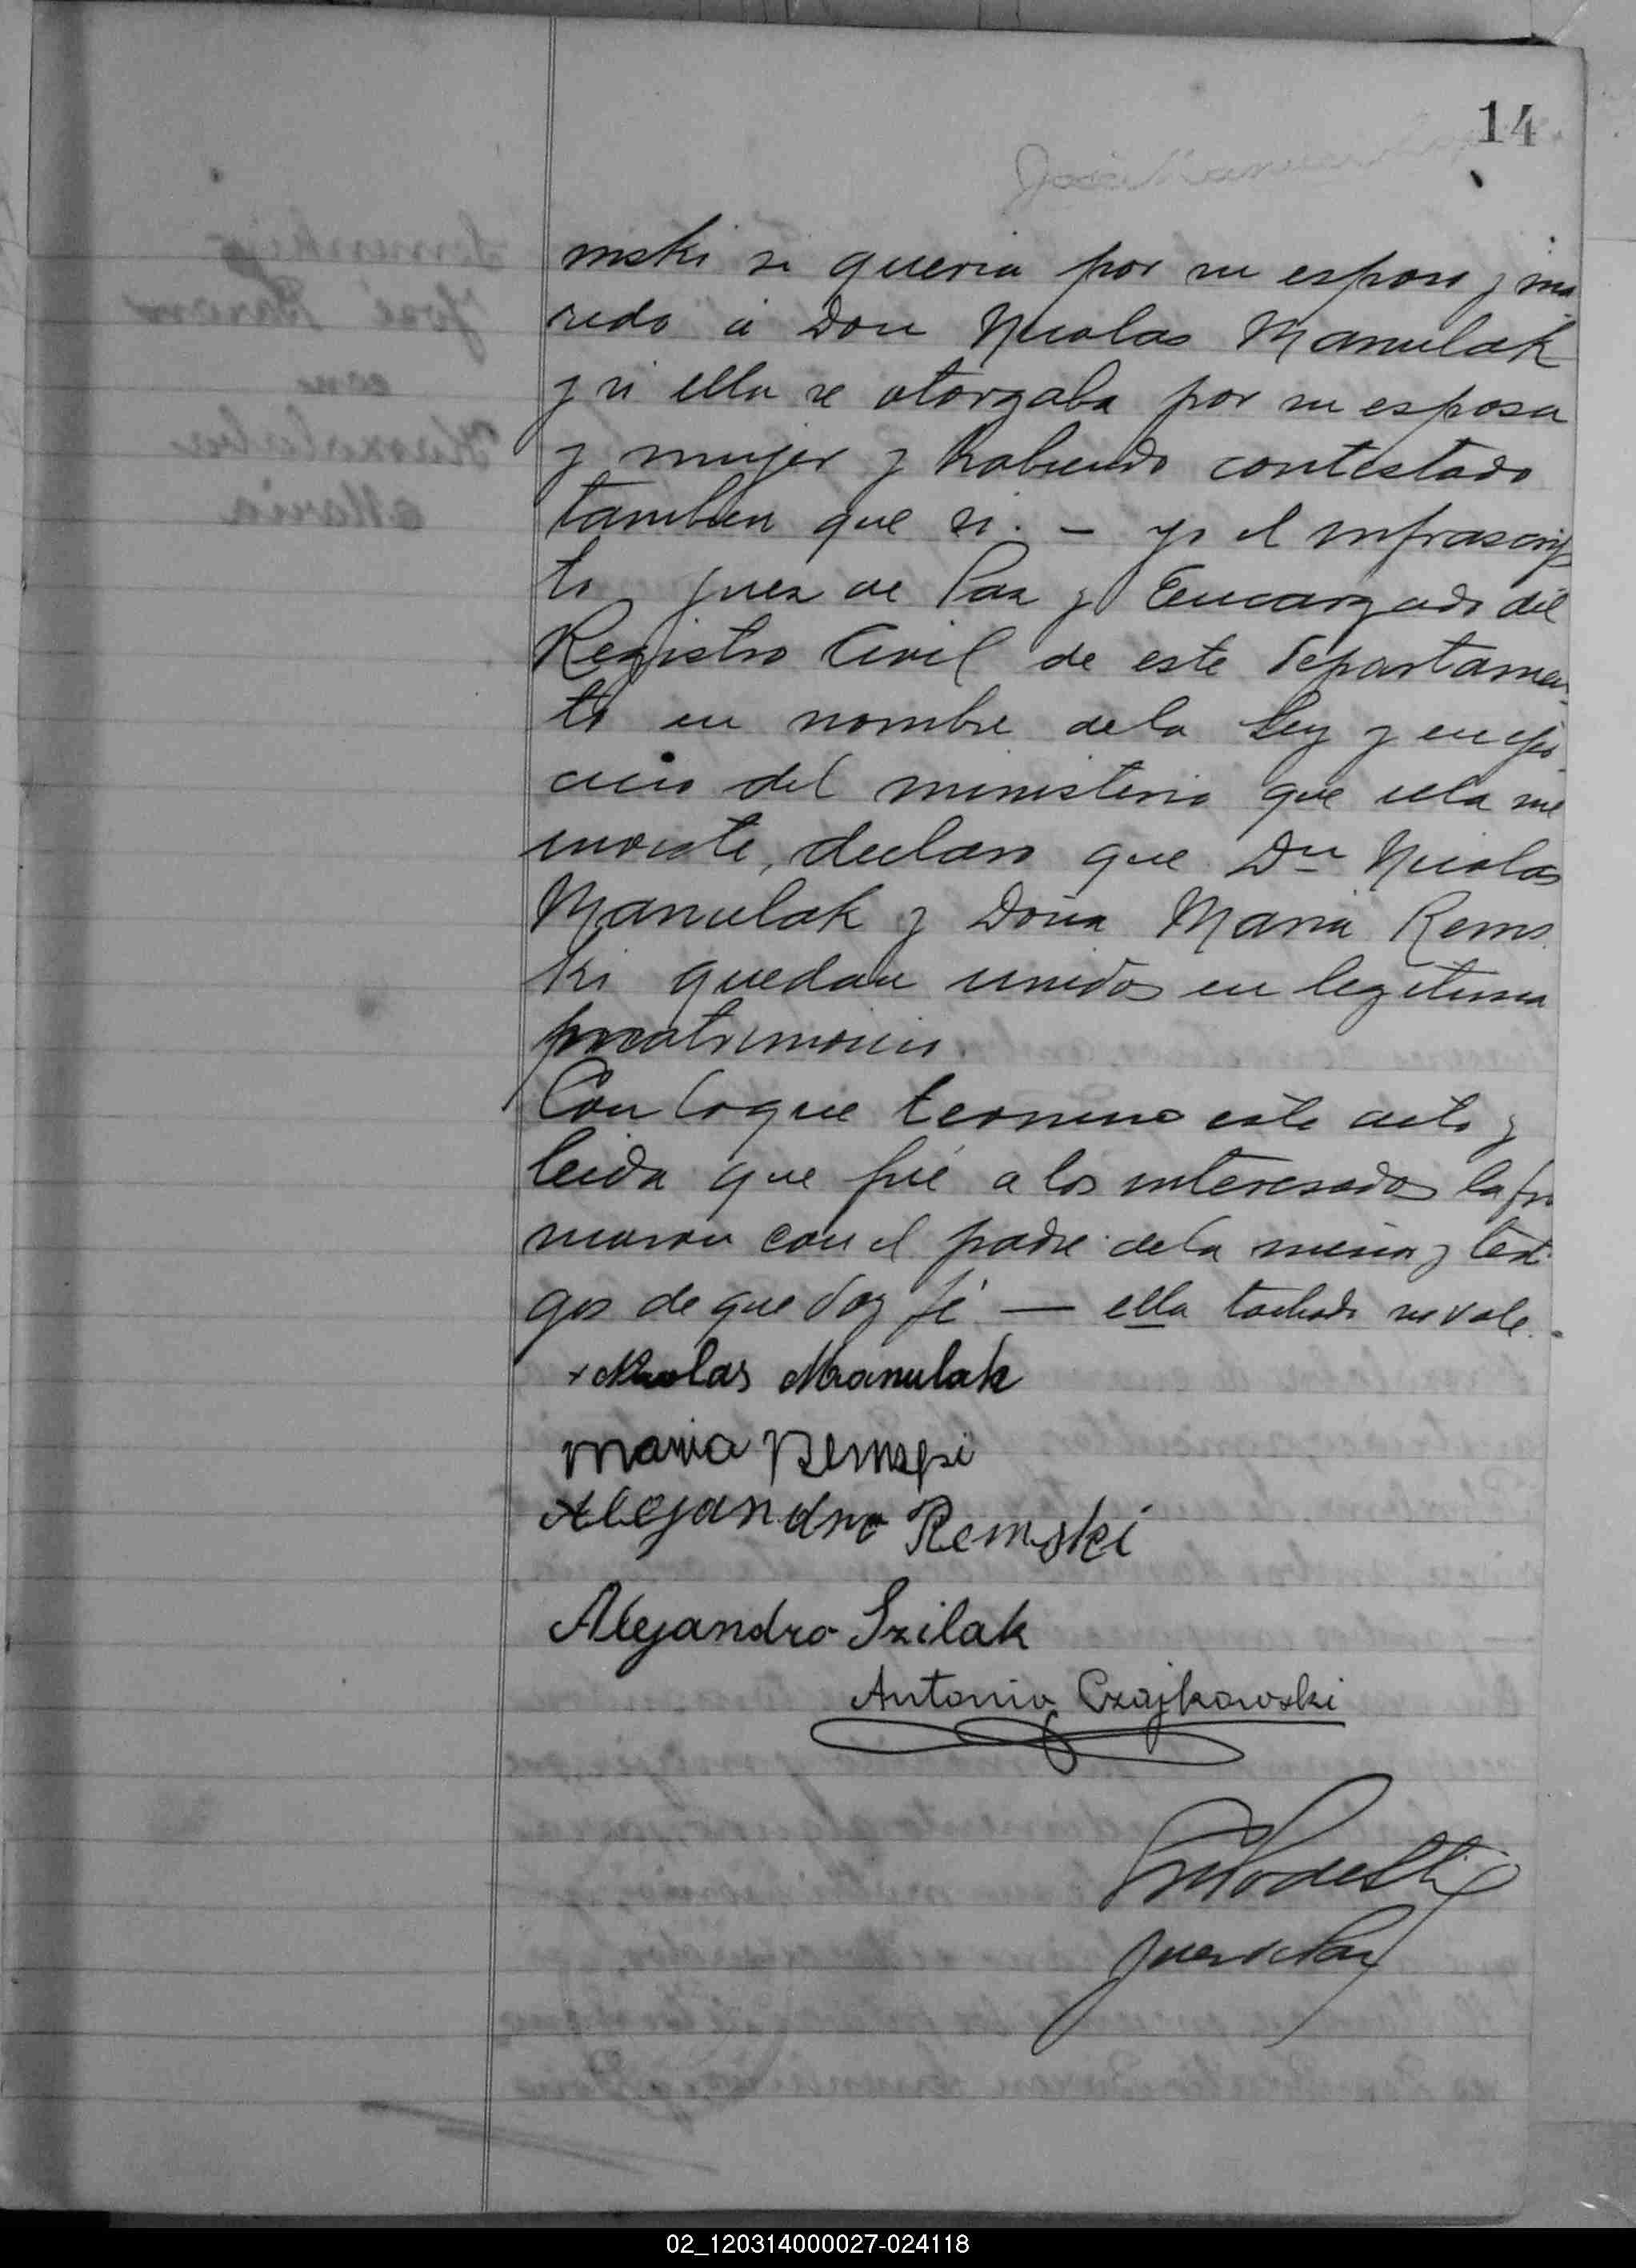 14
mski si queria por su esposo y ma
rido á Don Nicolas Manulak
y si ella se otorgaba por su esposa
y mujer y habiendo contestado
tambien que si. — yo el infrascrip
to Juez de Paz y Encargado del
Registro Civil de este Departamen
to en nombre de la Ley y en ejer
cicio del ministerio que ella me
inviste, declaro que Dn Nicolas
Manulak y Doña Maria Rems
ki quedan unidos en legitimo
matrimonio.
Con lo que termino este acto y
leida que fué a los interesados la fir
maron con el padre de la menor y testi
gos de que doy fé — ella tachado no vale.
Nicolas Manulak
Maria Remski
Alejandro Remski
Alejandro Szilak
Antonio Czajkowski
Juez de Paz
02_120314000027-024118